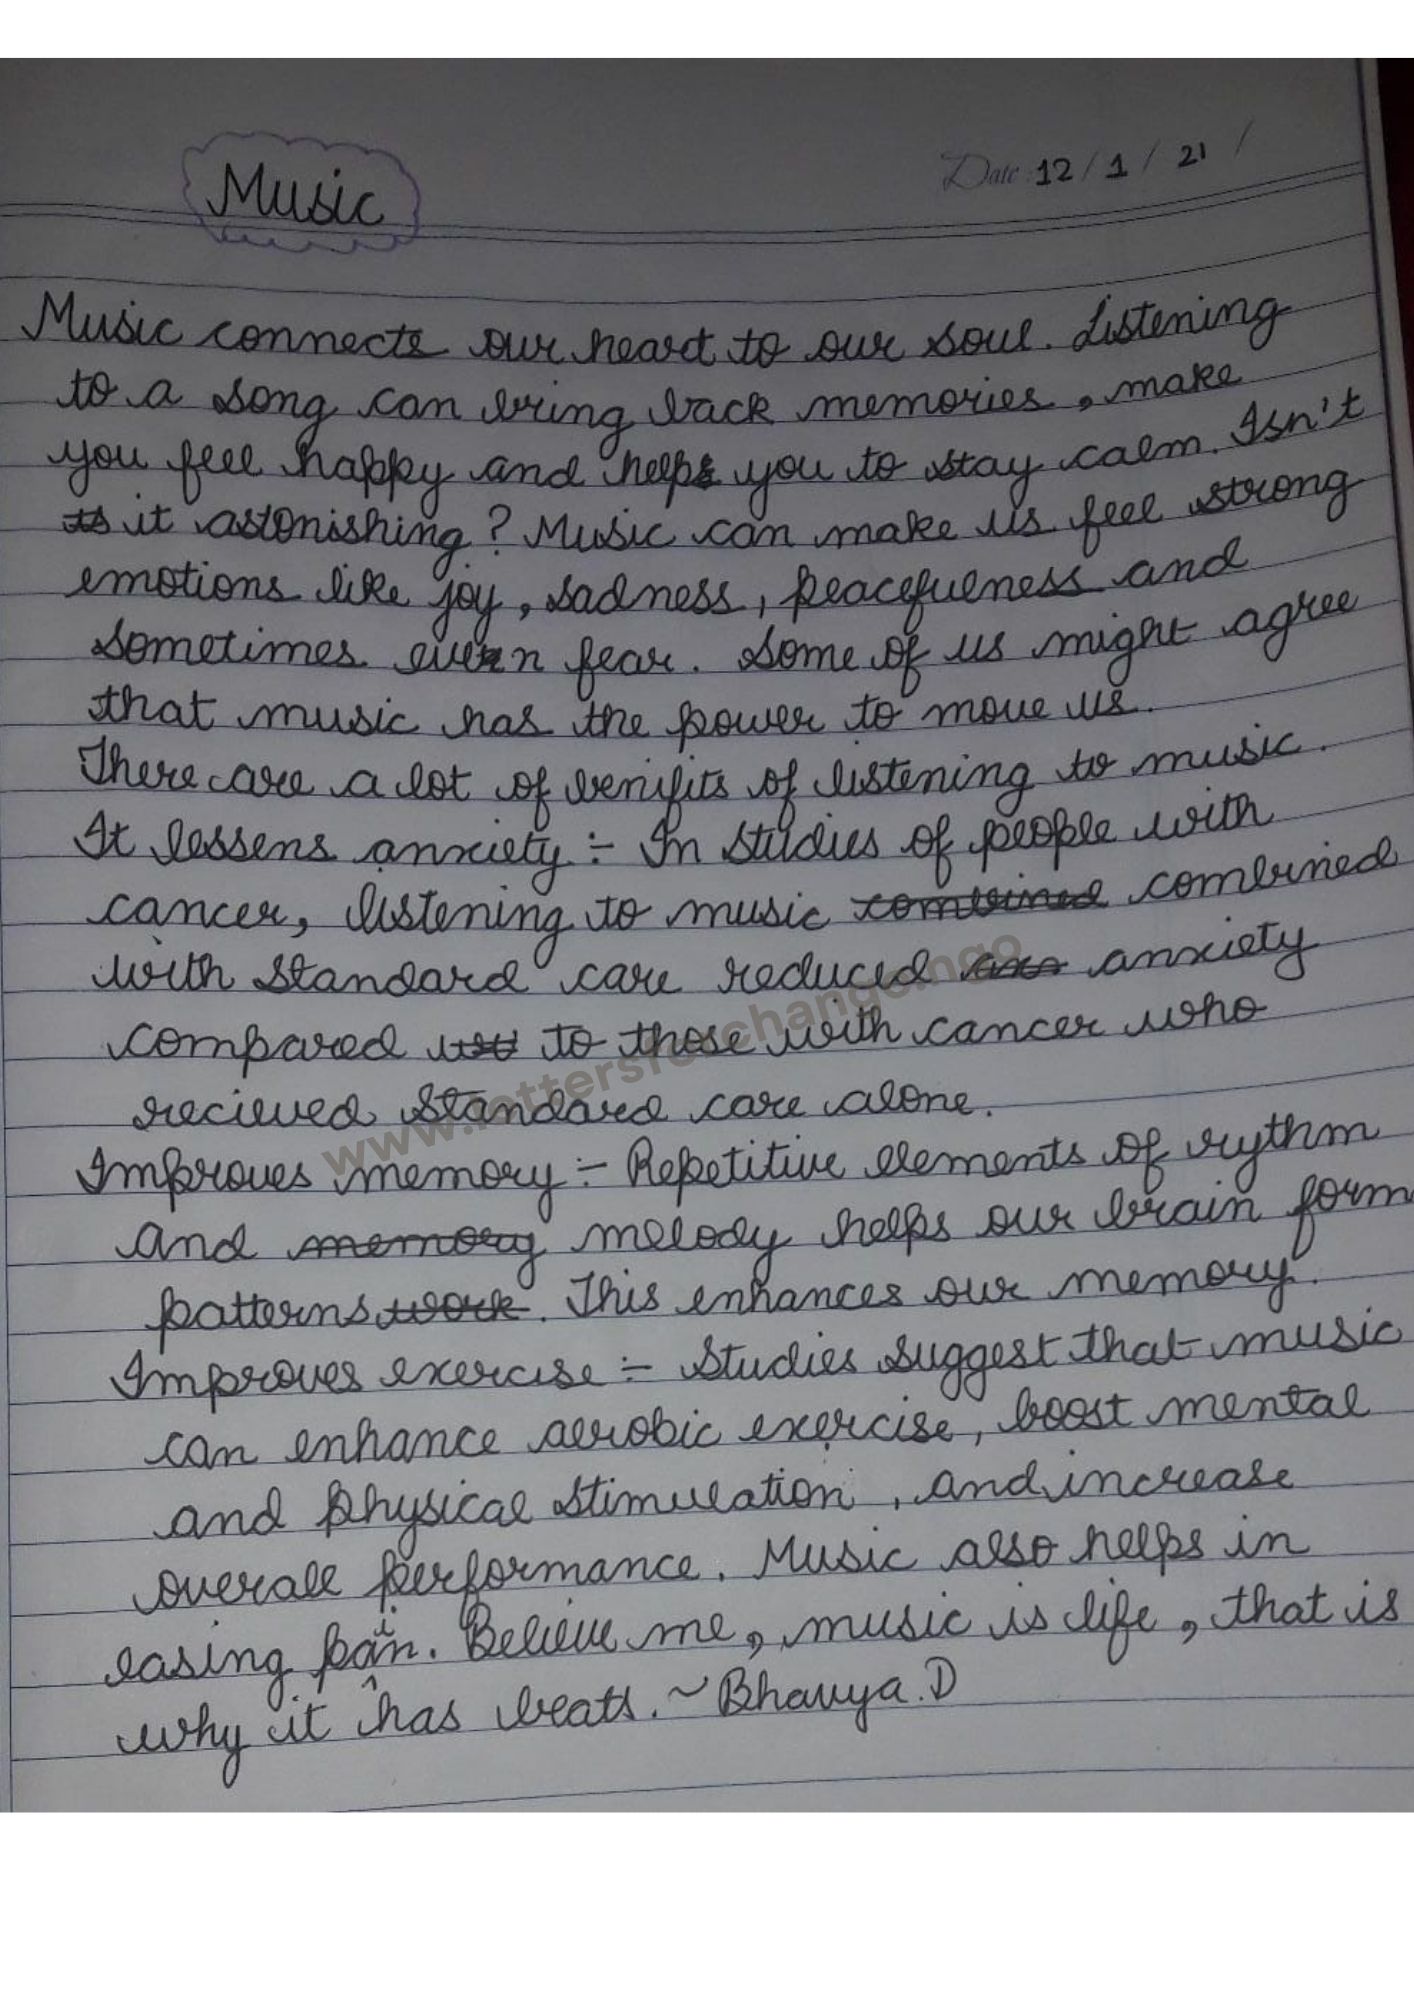 Music
Date: 12/1/21/
Music connects our heart to our soul. Listening
to a song can bring back memories, make
you feel happy and helps you to stay calm. Isn't
its it astonishing? Music can make us feel strong
emotions like joy, sadness, peacefulness and
sometimes even fear. Some of us might agree
that music has the power to move us.
There are a lot of benifits of listening to music.
It lessens anxiety :- In studies of people with
cancer, listening to music combined combined
with standard care reduced anxiety
compared to those with cancer who
recieved standard care alone.
Improves memory :- Repetitive elements of rythm
and memory melody helps our brain form
patterns work. This enhances our memory.
Improves exercise :- Studies suggest that music
can enhance aerobic exercise, boost mental
and physical stimulation, and increase
overall performance. Music also helps in
easing pain. Believe me, music is life, that is
why it has beats. ~Bhavya.D
www.lettersforchange.ngo